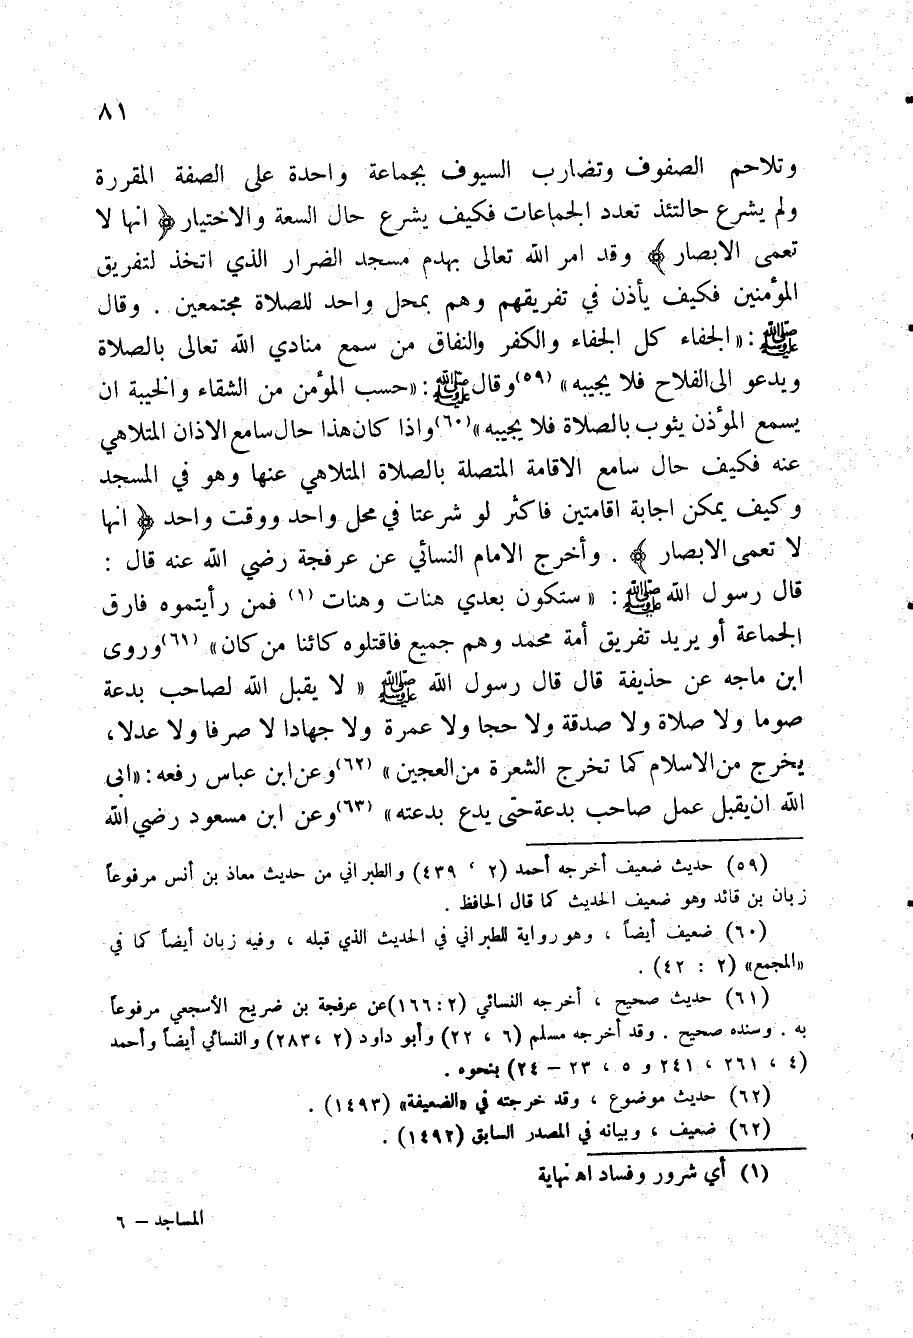 ٨١
وتلاحم الصفوف وتضارب السيوف بجماعة واحدة على الصفة المقررة
ولم يشرع حالتئذ تعدد الجماعات فكيف يشرع حال السعة والاختيار ﴿ انها لا
تعمى الابصار ﴾ وقد امر الله تعالى بهدم مسجد الضرار الذي اتخذ لتفريق
المؤمنين فكيف يأذن في تفريقهم وهم بمحل واحد للصلاة مجتمعين . وقال
ﷺ : «الجفاء كل الجفاء والكفر والنفاق من سمع منادي الله تعالى بالصلاة
ويدعو الى الفلاح فلا يجيبه» (٥٩) وقال ﷺ : «حسب المؤمن من الشقاء والخيبة ان
يسمع المؤذن يثوب بالصلاة فلا يجيبه» (٦٠) واذا كان هذا حال سامع الاذان المتلاهي
عنه فكيف حال سامع الاقامة المتصلة بالصلاة المتلاهي عنها وهو في المسجد
وكيف يمكن اجابة اقامتين فاكثر لو شرعتا في محل واحد ووقت واحد ﴿ انها
لا تعمى الابصار ﴾ . وأخرج الامام النسائي عن عرفجة رضي الله عنه قال :
قال رسول الله ﷺ : « ستكون بعدي هنات وهنات (١) فمن رأيتموه فارق
الجماعة أو يريد تفريق أمة محمد وهم جميع فاقتلوه كائنا من كان» (٦١) وروى
ابن ماجه عن حذيفة قال قال رسول الله ﷺ « لا يقبل الله لصاحب بدعة
صوما ولا صلاة ولا صدقة ولا حجا ولا عمرة ولا جهادا لا صرفا ولا عدلا ،
يخرج من الاسلام كما تخرج الشعرة من العجين» (٦٢) وعن ابن عباس رفعه : «ابى
الله ان يقبل عمل صاحب بدعة حتى يدع بدعته» (٦٣) وعن ابن مسعود رضي الله
(٥٩) حديث ضعيف أخرجه أحمد (٢ ، ٤٣٩) والطبراني من حديث معاذ بن أنس مرفوعاً
زبان بن قائد وهو ضعيف الحديث كما قال الحافظ .
(٦٠) ضعيف أيضاً ، وهو رواية للطبراني في الحديث الذي قبله ، وفيه زبان أيضاً كما في
«المجمع» (٢ : ٤٢) .
(٦١) حديث صحيح ، أخرجه النسائي (٢ : ١٦٦) عن عرفجة بن ضريح الأسجعي مرفوعاً
به . وسنده صحيح . وقد أخرجه مسلم (٦ ، ٢٢) وأبو داود (٢ ، ٢٨٣) والنسائي أيضاً وأحمد
(٤ ، ٢٦١ ، ٢٤١ و ٥ ، ٢٣ – ٢٤) بنحوه .
(٦٢) حديث موضوع ، وقد خرجته في «الضعيفة» (١٤٩٣) .
(٦٢) ضعيف ، وبيانه في المصدر السابق (١٤٩٢) .
(١) أي شرور وفساد اه نهاية
المساجد – ٦